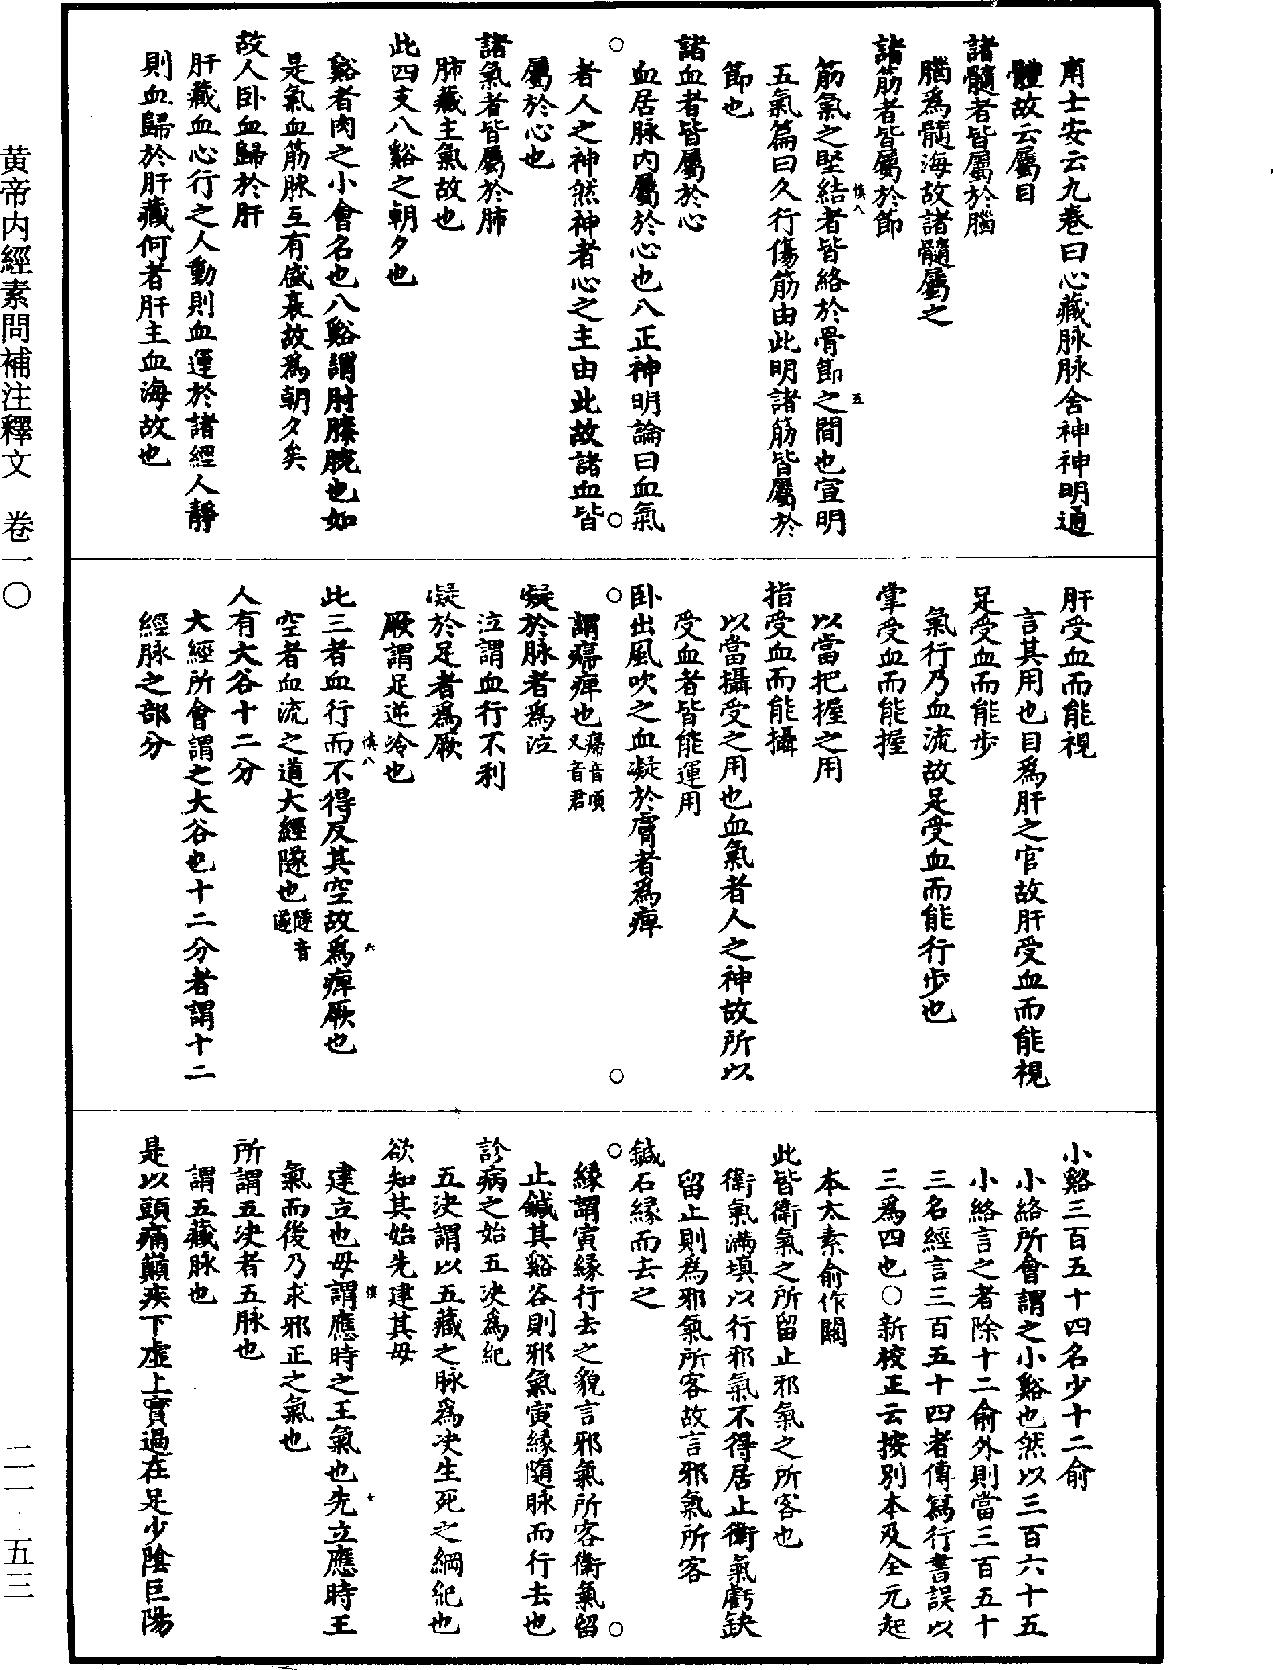 甫士安云九卷曰心藏脉脉舍神神明通
體故云屬目
諸髓者皆屬於腦
腦為髓海故諸髓屬之
諸筋者皆屬於節
筋氣之堅結者皆絡於骨節之間也宣明
五氣篇曰久行傷筋由此明諸筋皆屬於
節也
諸血者皆屬於心
血居脉内屬於心也八正神明論曰血氣
者人之神然神者心之主由此故諸血皆
屬於心也
諸氣者皆屬於肺
肺藏主氣故也
此四支八谿之朝夕也
谿者肉之小會名也八谿謂肘膝腕也如
是氣血筋脉互有盛衰故為朝夕矣
故人卧血歸於肝
肝藏血心行之人動則血運於諸經人靜
則血歸於肝藏何者肝主血海故也
慎八
五
肝受血而能視
言其用也目為肝之官故肝受血而能視
足受血而能步
氣行乃血流故足受血而能行步也
掌受血而能握
以當把握之用
指受血而能攝
以當攝受之用也血氣者人之神故所以
受血者皆能運用
卧出風吹之血凝於膚者為痹
謂㾯痹也㾯音頑又音君
凝於脉者為泣
泣謂血行不利
凝於足者為厥
厥謂足逆冷也
此三者血行而不得反其空故為痹厥也
空者血流之道大經隧也隧音遂
人有大谷十二分
大經所會謂之大谷也十二分者謂十二
經脉之部分
慎八
六
小谿三百五十四名少十二俞
小絡所會謂之小谿也然以三百六十五
小絡言之者除十二俞外則當三百五十
三名經言三百五十四者傳寫行書誤以
三為四也○新校正云按别本及全元起
本太素俞作關
此皆衛氣之所留止邪氣之所客也
衛氣滿填以行邪氣不得居止衛氣虧缺
留止則為邪氣所客故言邪氣所客
鍼石緣而去之
緣謂寅緣行去之貌言邪氣所客衛氣留
止鍼其谿谷則邪氣寅緣隨脉而行去也
診病之始五决為紀
五决謂以五藏之脉為决生死之綱紀也
欲知其始先建其母
建立也母謂應時之王氣也先立應時王
氣而後乃求邪正之氣也
所謂五决者五脉也
謂五藏脉也
是以頭痛巔疾下虚上實過在足少陰巨陽
七
黄帝内經素問補注釋文　卷一〇
二一·五三